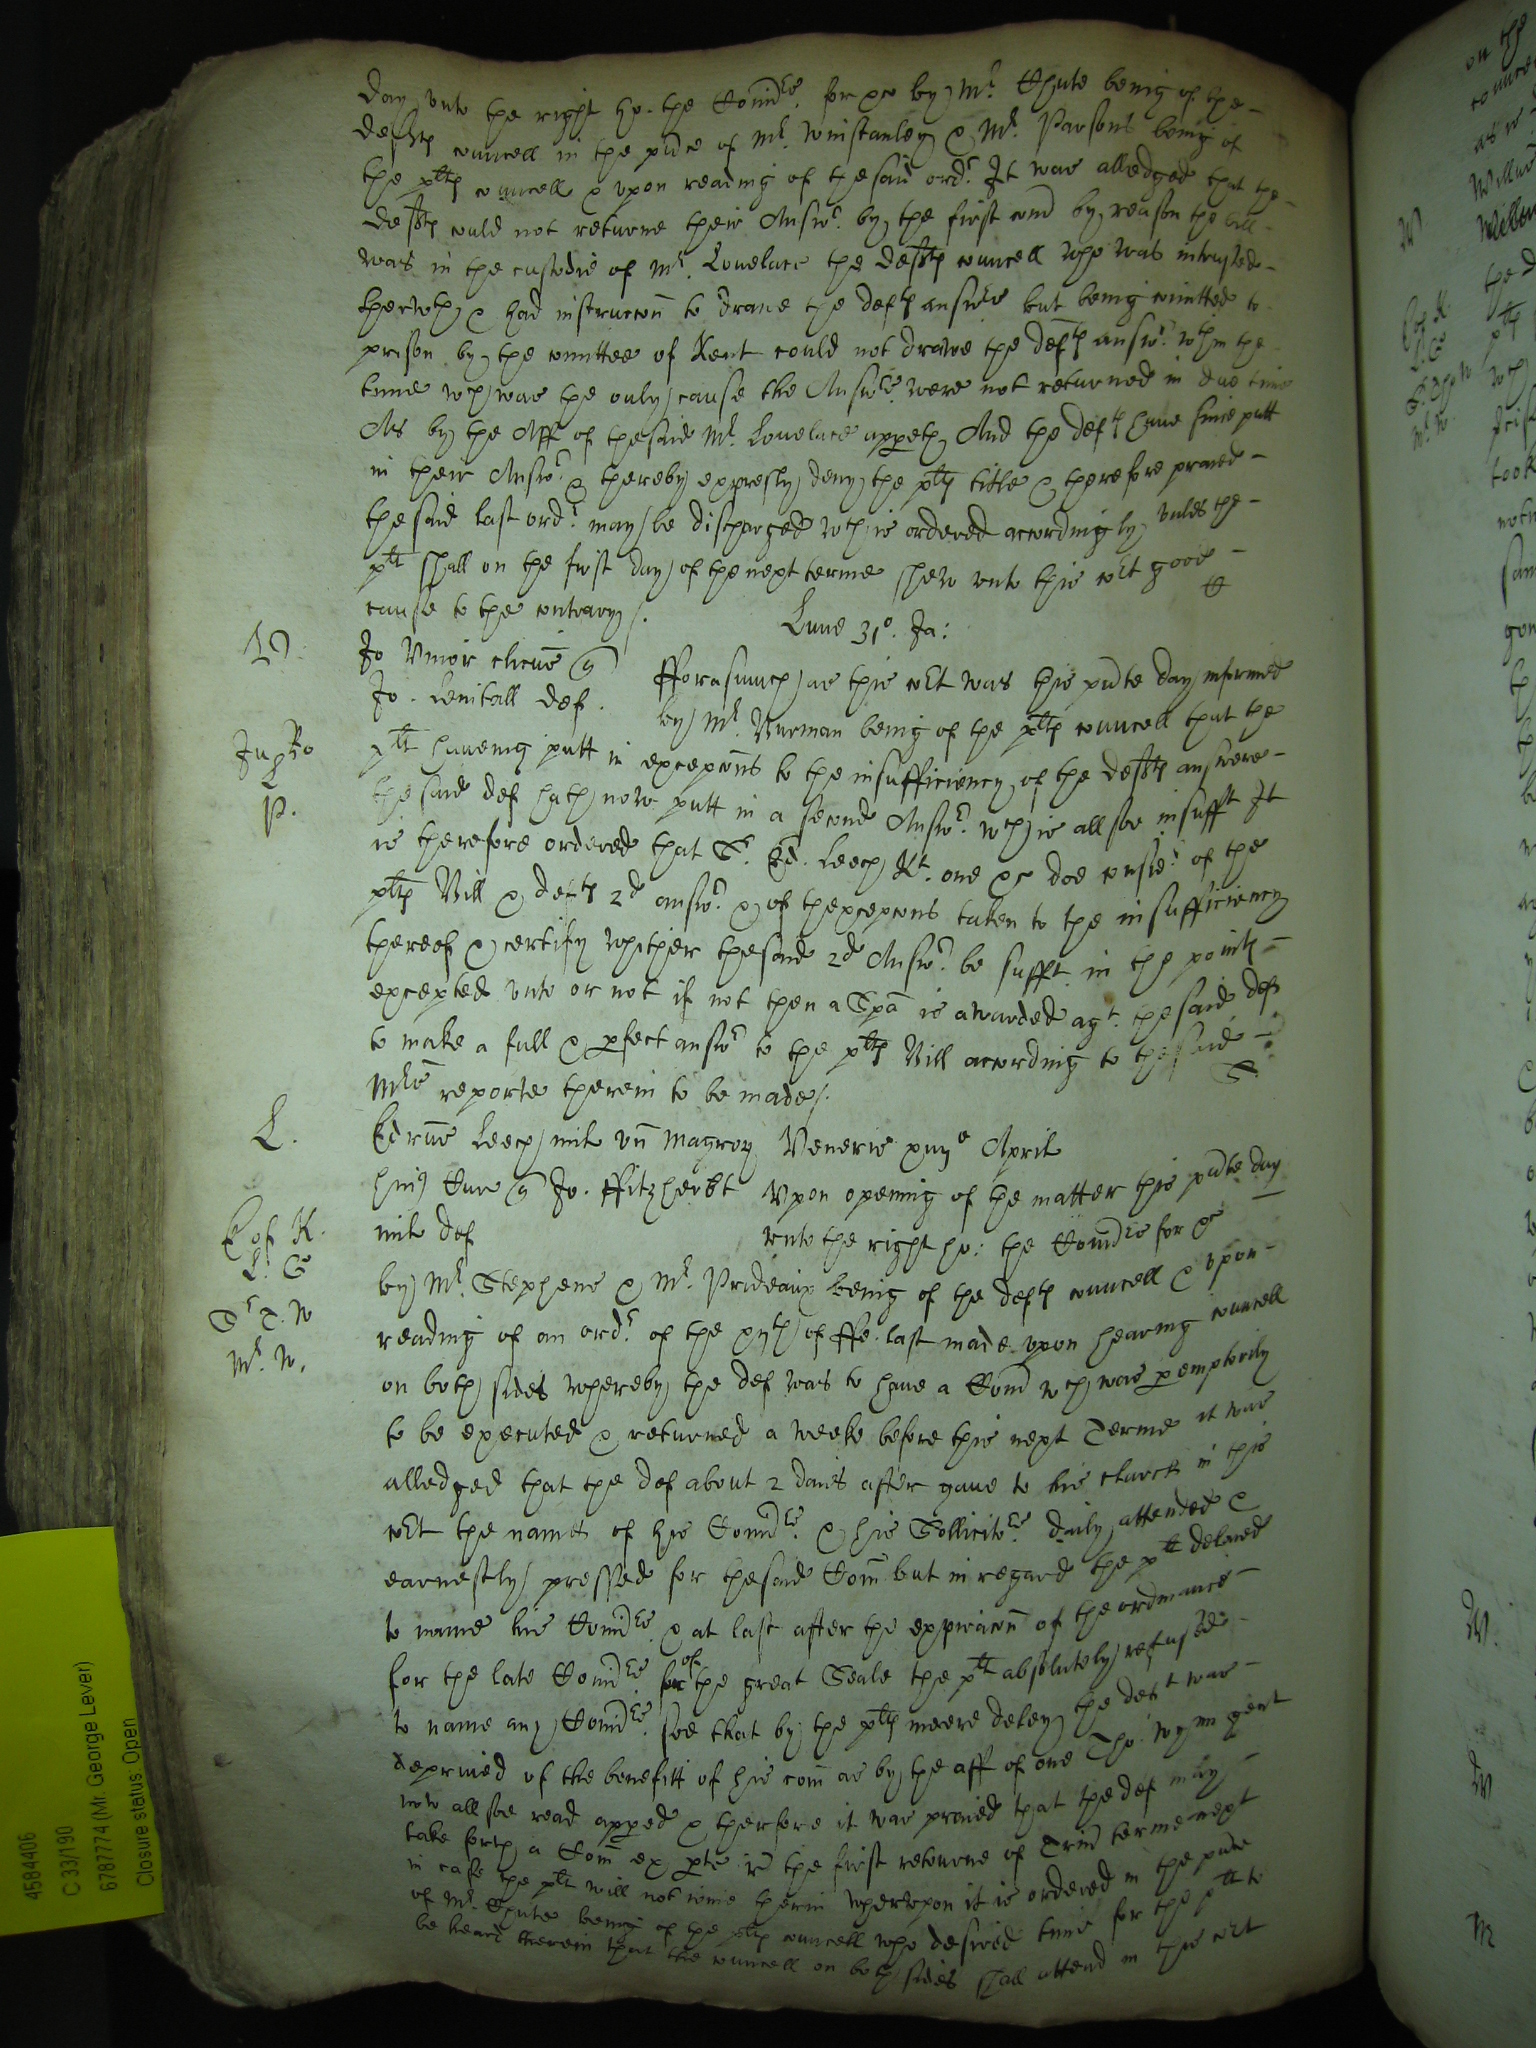 Day unto the right ho. the Comrs. for &c by Mr. Chute being of the
defts councell in the pnce of Mr. Winstanley & Mr. Parsons being of
the plts councell & upon reading of the said ordr. It was alledged that the
defts could not returne their Answr. by the first comd by reason the bill
was in the custodie of Mr. Lovelace the defts councell who was intrusted
therwth & had instruccon to drawe the defts answere but being comitted to
prison by the comittee of Kent could not drawe the defts answr. wthin the
time wch was the only cause the Answrs. were not returned in due time
As by the Aff of the said Mr. Lovelace appeth And the defts have since putt
in their Answr. & thereby expresly deny the plts title & therefore praied
the said last ordr. may be discharged wch is ordered accordingly unles the
plt shall on the first day of the next terme shew unto this cort good
cause to the contrary /.
Lune 31o. Ja:
Jo Vmor clicus q
Jo. Lenthall def.
fforasmuch as this cort was this pnte day informed
by Mr. Burman being of the plts councell that the
plt haveing putt in excepcons to the insufficiency of the defts answere
the said def hath now putt in a second Answr. wch is allsoe insufft It
is therefore ordered that Sr. Ed. Leech Kt. one &c doe considr of the
plts Bill & defts 2d answr. & of thexcepcons taken to the insufficiency
thereof & certify whither the said 2d Answr. be sufft in the points
excepted unto or not if not then a Spa is awarded agt. the said deft
to make a full & pfect answr to the plts Bill according to the said
Mrs reporte therein to be made /.
L.
Edrus Leech mil un Magror
huis Cur q Jo. ffitzherbt
mil def
Veneris April
Upon opening of the matter this pnte day
unto the right ho: the Comrs for &c
E of K.
L. G
Sr T. W
Mr. W.
by Mr Stephens & Mr. Prideaux being of the defts councell & upon
reading of an ordr. of the xijth of ffe. last made upon hearing councell
on both sides whereby the def was to have a Comd wch was pemptorily
to be executed & returned a weeke before this next Terme it was
alledged that the def about 2 daies after gave to his clarck in this
cort the names of his Comrs. & his Sollicitrs. daily attended &
earnestly pressed for the said Com but in regard the plt delaied
to name his Comrs. & at last after the expiracon of the ordinance
for the late Comrs for of the great Seale the plt absolutely refused
to name any Comrs. soe that by the plts meere deley the deft was
deprived of the benefitt of his com as by the aff of one Tho. Wynn gent
now allsoe read apped & therfore it was praied that the def may
take forth a Com ex pte re the first retourne of Trin terme next
in case the plt will not ioine therin wherupon it is ordered in the pnce
of Mr. Chute being of the plts councell who desired time for the plt to
be heard therein that the councell on both sides shall attend in this cort
4584406
C 33/190
6787774 (Mr. George Lever)
Closure status: Open